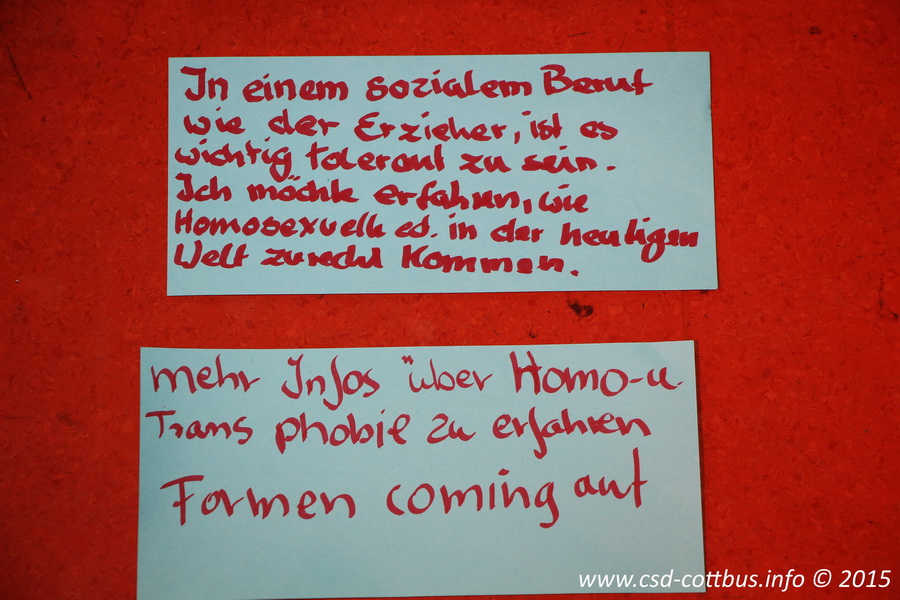 In einem sozialem Beruf
wie der Erzieher, ist es
wichtig tolerant zu sein.
Ich möchte erfahren, wie
Homosexuelle ect. in der heutigen
Welt zurecht kommen.
mehr Infos über Homo-u.
Trans phobie zu erfahren
Formen coming aut
www.csd-cottbus.info © 2015